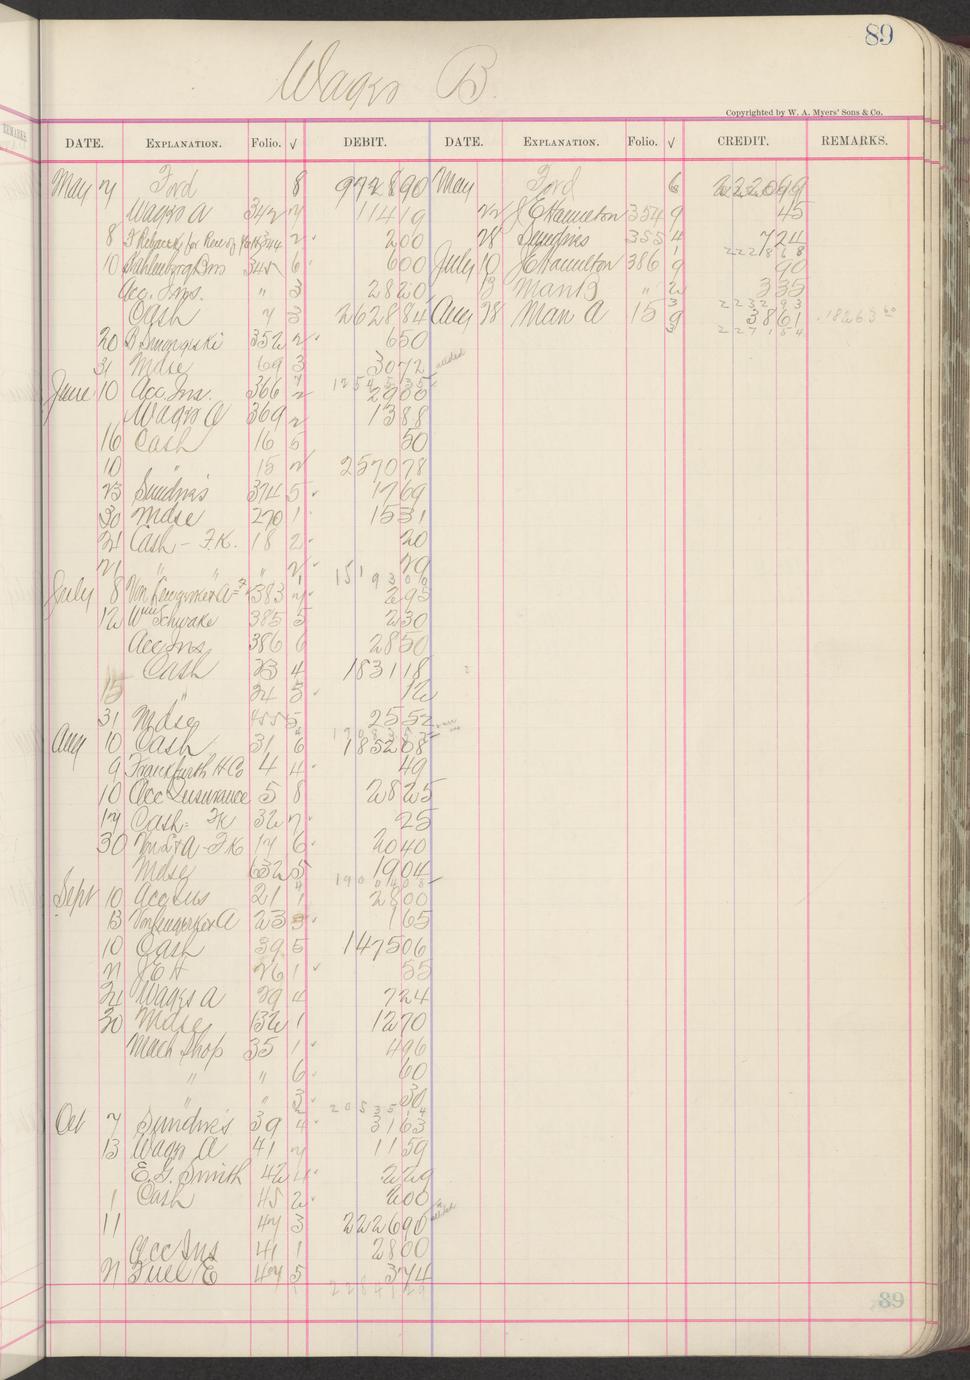 89
Wages B.
Copyrighted by W. A. Myers' Sons & Co.
DATE. EXPLANATION. Folio. √ DEBIT. DATE. EXPLANATION. Folio. √ CREDIT. REMARKS.
May 7 Ford 8 972890 May Ford 6 222099
Wages A 342 7 11419 22 J E Hamilton 354 9 45
8 2 200 28 Sundries 355 4 724
222868
10 Bros 345 6 600 July 10 J E Hamilton 386 9 90
Acc. Ins. " 3 2820 13 Man B " 2 335
223293
Cash 7 3 262884 Aug 28 Man A 15 9 3861 18263
227154
20 352 2 650
31 Mdse 69 3 3072 added
1254535
June 10 Acc. Ins. 366 2 2900
Wages A 369 2 1388
16 Cash 16 5 50
10 " 15 2 257078
23 Sundries 374 5 1769
30 Mdse 270 1 1531
21 Cash - F.K. 18 2 20
21 " " " 2 79
1519306
July 8 383 295
12 Wm Schwake 385 5 230
Acc Ins 386 6 2850
Cash 23 4 183118
15 " 24 5 12
31 Mdse 455 5 2552
Aug 10 Cash 31 6 185208
9 Frankfurth H Co 4 4 49
10 Acc Insurance 5 8 2825
17 Cash - FK 32 7 25
30 Von L & A - F K 17 6 2040
Mdse 632 5 1904
1900408
Sept 10 Acc Ins 21 1 2800
13 A 23 165
10 Cash 39 5 147506
21 J E H 26 1 55
24 Wages A 29 4 724
30 Mdse 132 1 1270
Mach Shop 35 1 496
" " 6 60
" " 3 30
2053514
Oct 7 Sundries 39 4 3163
13 Wages A 41 7 1159
E. G. Smith 42 4 229
1 Cash 45 2 200
11 47 3 222690 added
Acc Ins 41 1 2800
21 Fuel E 47 5 374
89